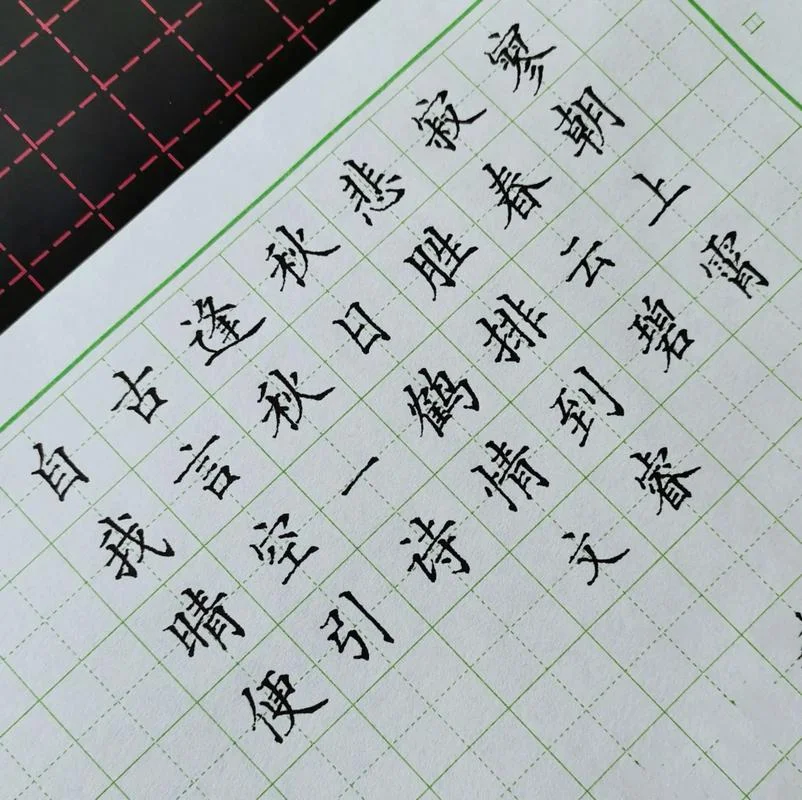 自古逢秋悲寂寥
我言秋日胜春朝
晴空一鹤排云上
便引诗情到碧霄
文睿